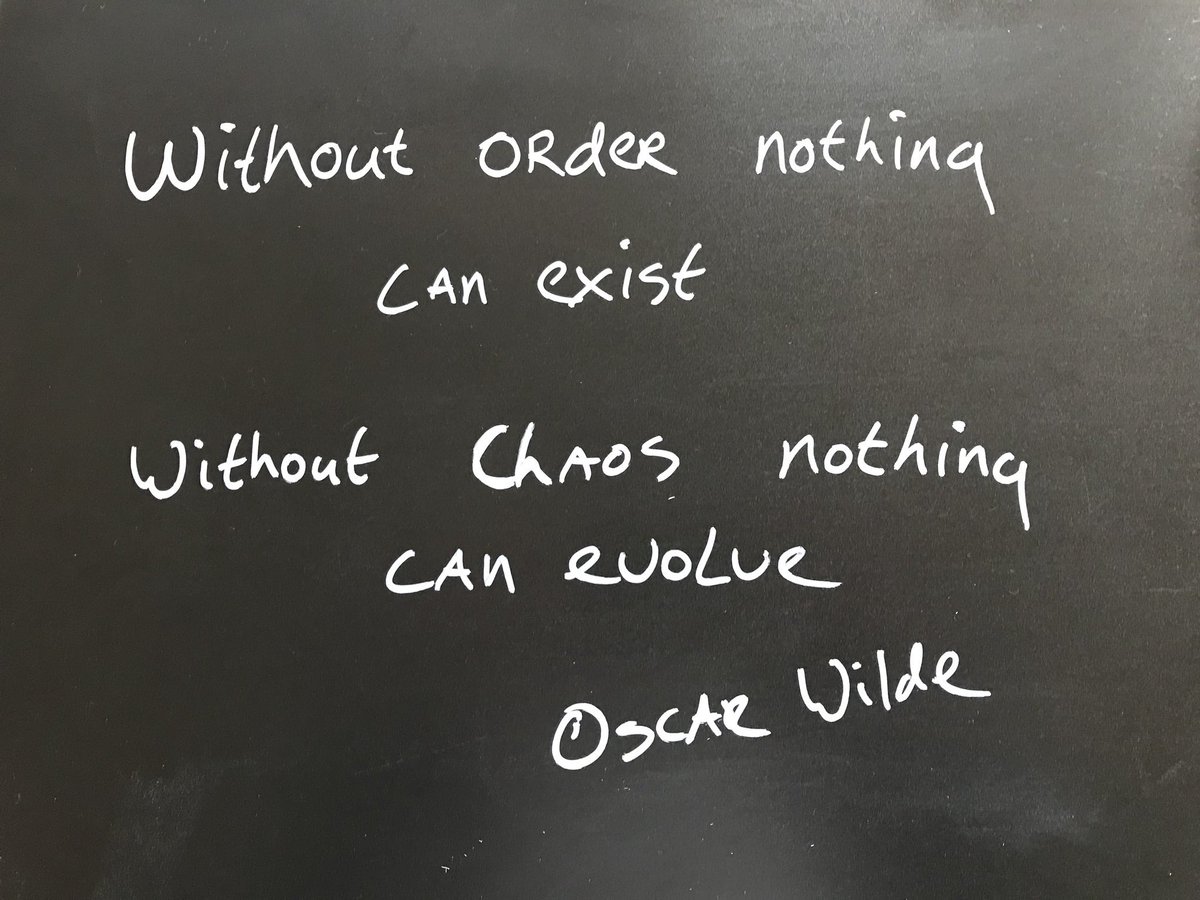 Without order nothing
can exist
Without Chaos nothing
can evolve
Oscar Wilde